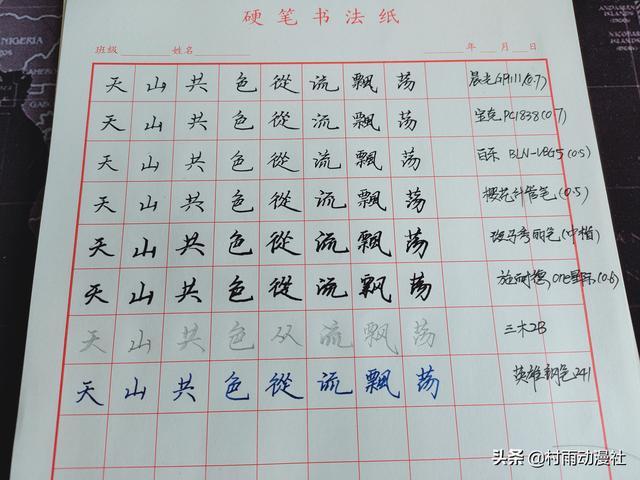 硬笔书法纸
班级 姓名 年 月 日
天山共色從流飄荡 晨光GP1111(0.7)
天山共色從流飄荡 宝克PC1838(0.7)
天山共色從流飄荡 百乐 BLN-VBG5(0.5)
天山共色從流飄荡 樱花针管笔(0.5)
天山共色從流飄荡 斑马秀丽笔(中楷)
天山共色從流飘荡 施耐德,one星际(0.6)
天山共色从流飄荡 三木2B
天山共色從流飄荡 英雄钢笔241
头条@村雨动漫社